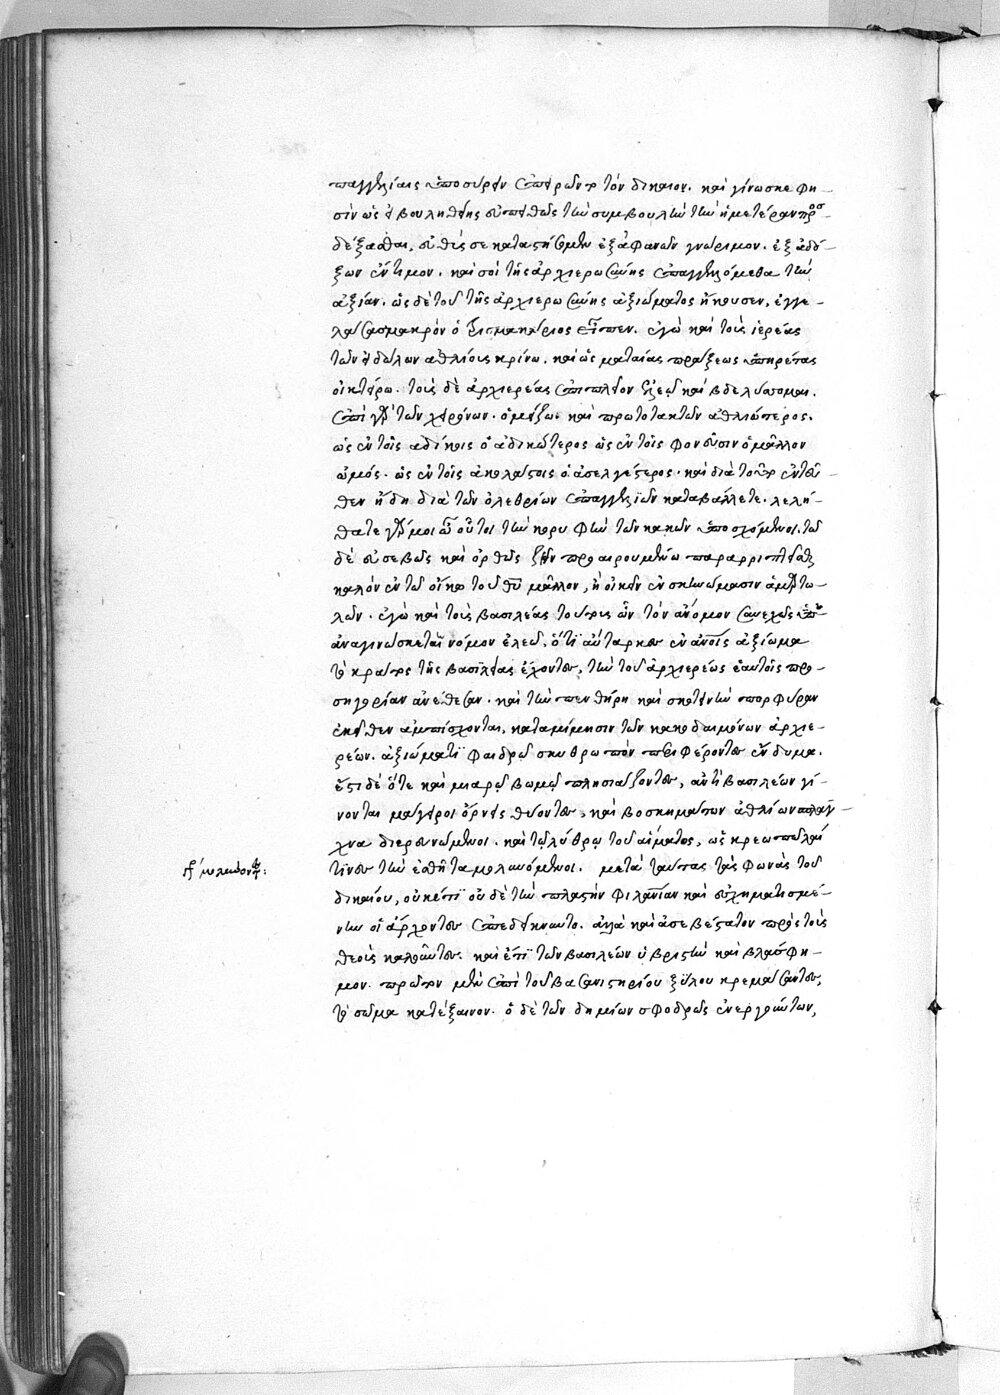 παγγελίαις ὑποσύρειν ἐπειρῶντο τὸν δίκαιον. καὶ γίνωσκε φη-
σὶν ὡς εἰ βουληθείης εὐπειθῶς τὴν συμβουλὴν τὴν ἡμετέραν προσ-
δέξασθαι, εὐθύς σε καταστήσομεν ἐξ ἀφανῶν γνώριμον. ἐξ ἀδό-
ξων ἔντιμον. καὶ σοὶ τῆς ἀρχιερωσύνης ἐπαγγελόμεθα τὴν
ἀξίαν. ὡς δὲ τοῦ τῆς ἀρχιερωσύνης ἀξιώματος ἤκουσεν, ἐγγε-
λάσας μακρὸν ὁ τρισμακάριος εἶπεν. ἐγὼ καὶ τοὺς ἱερέας
τῶν εἰδώλων ἀθλίους κρίνω. καὶ ὡς ματαίας πράξεως ὑπηρέτας
οἰκτείρω. τοὺς δὲ ἀρχιερέας ἐπιπλέον ἐλεῶ καὶ βδελύσσομαι.
ἐπὶ γὰρ τῶν χειρόνων. ὁ μείζων καὶ πρωτοτακτῶν ἀθλιώτερος.
ὡς ἐν τοῖς ἀδίκοις ὁ ἀδικώτερος ὡς ἐν τοῖς φονεῦσιν ὁ μᾶλλον
ὠμός. ὡς ἐν τοῖς ἀκολάστοις ὁ ἀσελγέστερος. καὶ διὰ τοῦτο ἐντεῦ-
θεν ἤδη διὰ τῶν ὀλεθρίων ἐπαγγελιῶν καταβάλλετε. λελή-
θατε γάρ μοι οὗτοι τὴν κορυφὴν τῶν κακῶν ὑποσχόμενοι. τῷ
δὲ εὐσεβῶς καὶ ὀρθῶς ζῆν προαιρουμένῳ παραρριπτεῖσθαι
καλὸν ἐν τῷ οἴκῳ τοῦ θυ μᾶλλον, ἢ οἰκεῖν ἐν σκηνώμασιν ἁμαρτω-
λῶν. ἐγὼ καὶ τοὺς βασιλέας τούτους ὧν τὸν ἄνομον συνεχῶς
ἀναγινώσκεται νόμον ἐλεῶ, ὅτι αὔταρκες ἐν ανοις ἀξίωμα
τὸ κράτος τῆς βασιλείας ἔχοντες, τὴν τοῦ ἀρχιερέως ἑαυτοῖς προ-
σηγορίαν ἀνέθεσαν. καὶ τὴν πενθήρη καὶ σκοτεινὴν πορφύραν
ἐκεῖθεν ἀμπίσχονται, κατὰ μίμησιν τῶν κακοδαιμόνων ἀρχιε-
ρέων. ἀξιώματι φαιδρῷ σκυθρωπὸν περιφέροντες ἔνδυμα.
ἔστι δὲ ὅτε καὶ μιαρῷ βωμῷ πλησιάζοντες, ἀντὶ βασιλέων γί-
νονται μάγειροι ὄρνεις θύοντες, καὶ βοσκημάτων ἀθλίων σπλάγ-
χνα διερευνώμενοι. καὶ τῷ λύθρῳ τοῦ αἵματος, ὡς κρεωπῶλαί
τινες τὴν ἐσθῆτα μολυνόμενοι. μετὰ ταύτας τὰς φωνὰς τοῦ
δικαίου, οὐκέτι οὐδὲ τὴν πλαστὴν φιλανίαν καὶ ἐσχηματισμέ-
νην οἱ ἄρχοντες ἐπεδείκνυντο. ἀλλὰ καὶ ἀσεβέστατον πρὸς τοὺς
θεοὺς καλοῦντες. καὶ ἔτι τῶν βασιλέων ὑβριστὴν καὶ βλάσφη-
μον. πρῶτον μὲν ἐπὶ τοῦ βασανιστηρίου ξύλου κρεμάσαντες,
τὸ σῶμα κατέξαινον. ὁ δὲ τῶν δημίων σφοδρῶς ἐνεργούντων,